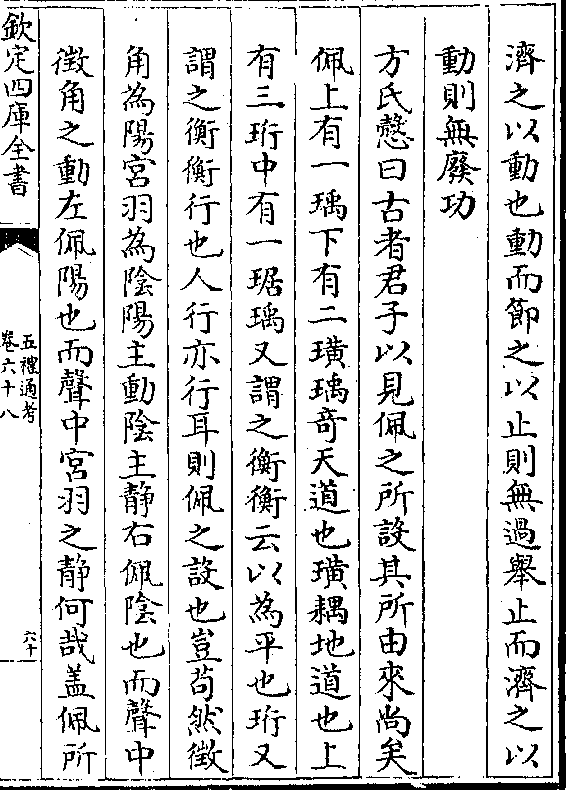 濟之以動也動而節之以止則無過舉止而濟之以
動則無廢功
方氏慤曰古者君子以見佩之所設其所由來尚矣
佩上有一瑀下有二璜瑀竒天道也璜耦地道也上
有三珩中有一琚瑀又謂之衡衡云以為平也珩又
謂之衡衡行也人行亦行耳則佩之設也豈苟然徵
角為陽宮羽為陰陽主動陰主静右佩陰也而聲中
徵角之動左佩陽也而聲中宮羽之静何哉盖佩所
欽定四庫全書
五禮通考
卷六十八
六十